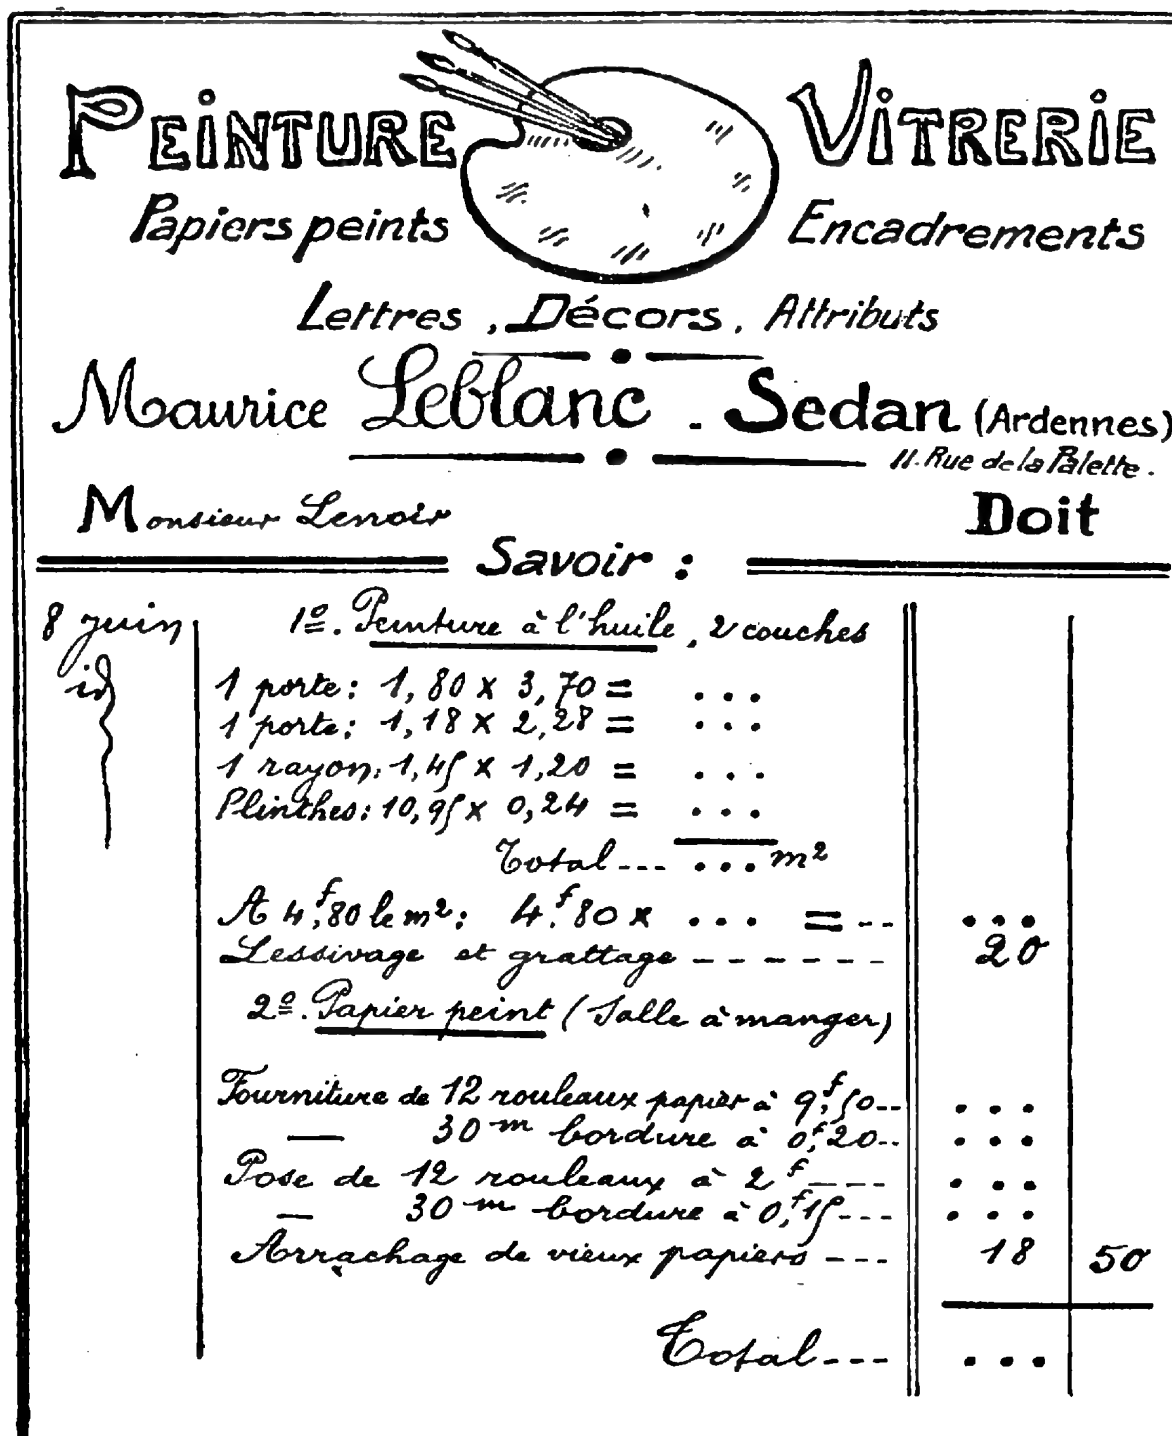 PEINTURE VITRERIE
Papiers peints Encadrements
Lettres, Décors, Attributs
Maurice Leblanc - Sedan (Ardennes)
11. Rue de la Palette.
Monsieur Lenoir Doit
Savoir :
8 juin 1º. Peinture à l'huile, 2 couches
id 1 porte : 1,80 x 3,70 = ...
1 porte : 1,18 x 2,28 = ...
1 rayon : 1,45 x 1,20 = ...
Plinthes : 10,95 x 0,24 = ...
Total --- ... m²
A 4f,80 le m² : 4f,80 x ... = -- ...
Lessivage et grattage ------- 20
2º. Papier peint (Salle à manger)
Fourniture de 12 rouleaux papier à 9f,50-- ...
— 30m bordure à 0f,20-- ...
Pose de 12 rouleaux à 2f ---- ...
— 30m bordure à 0f,15--- ...
Arrachage de vieux papiers --- 18 50
Total --- ...